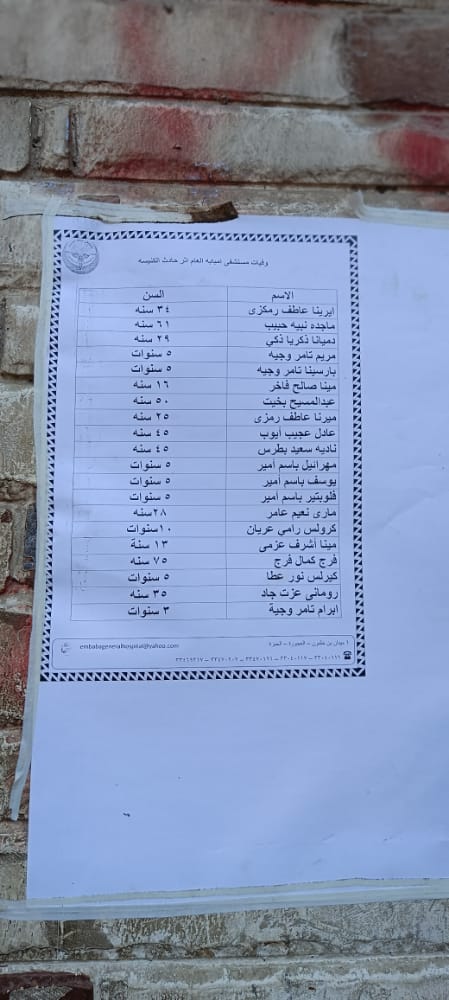 وفيات مستشفى امبابه العام اثر حادث الكنيسه
الاسم السن
ايرينا عاطف رمكزى ٣٤ سنه
ماجده نبيه حبيب ٦١ سنه
دميانا ذكريا ذكي ٢٩ سنه
مريم تامر وجيه ٥ سنوات
بارسينا تامر وجيه ٥ سنوات
مينا صالح فاخر ١٦ سنه
عبدالمسيح بخيت ٥٠ سنه
ميرنا عاطف رمزى ٢٥ سنه
عادل عجيب أيوب ٤٥ سنه
ناديه سعيد بطرس ٤٥ سنه
مهرائيل باسم أمير ٥ سنوات
يوسف باسم أمير ٥ سنوات
فلوبتير باسم أمير ٥ سنوات
مارى نعيم عامر ٢٨سنه
كرولس رامي عريان ١٠سنوات
مينا أشرف عزمى ١٣ سنة
فرج كمال فرج ٧٥ سنه
كيرلس نور عطا ٥ سنوات
رومانى عزت جاد ٣٥ سنه
ابرام تامر وجية ٣ سنوات
embabageneralhospital@yahoo.com